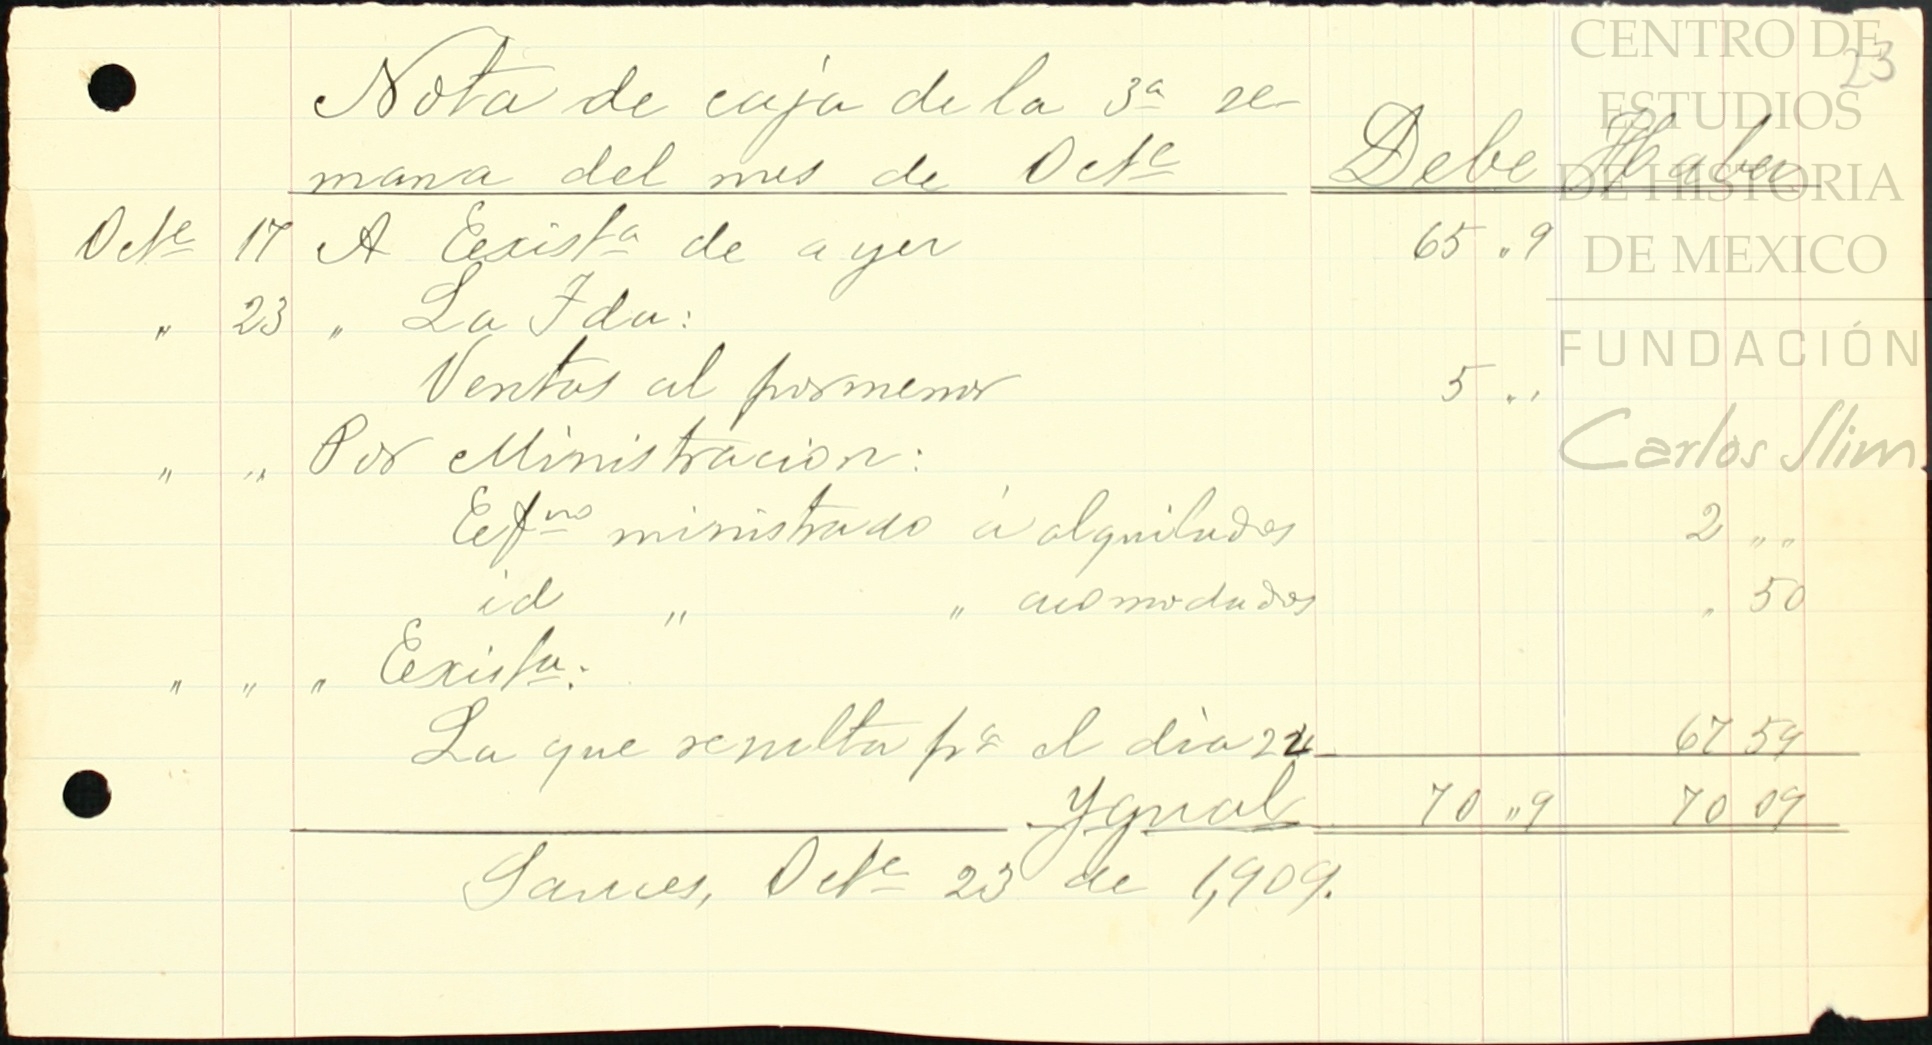 23
Nota de caja de la 3ª se-
mana del mes de Octe Debe Haber
Octe 17 A Existª de ayer 65 "9
" 23 " La Fda:
Ventas al pormenor 5 ""
" " Por Ministracion:
Efvo ministrado á alquilados 2 ""
id " " acomodados " 50
" " " Exista:
La que resulta pª el dia 24 67 59
Ygual 70 "9 70 09
Sauces, Octe 23 de 1,909.
CENTRO DE
ESTUDIOS
DE HISTORIA
DE MEXICO
FUNDACIÓN
Carlos Slim.